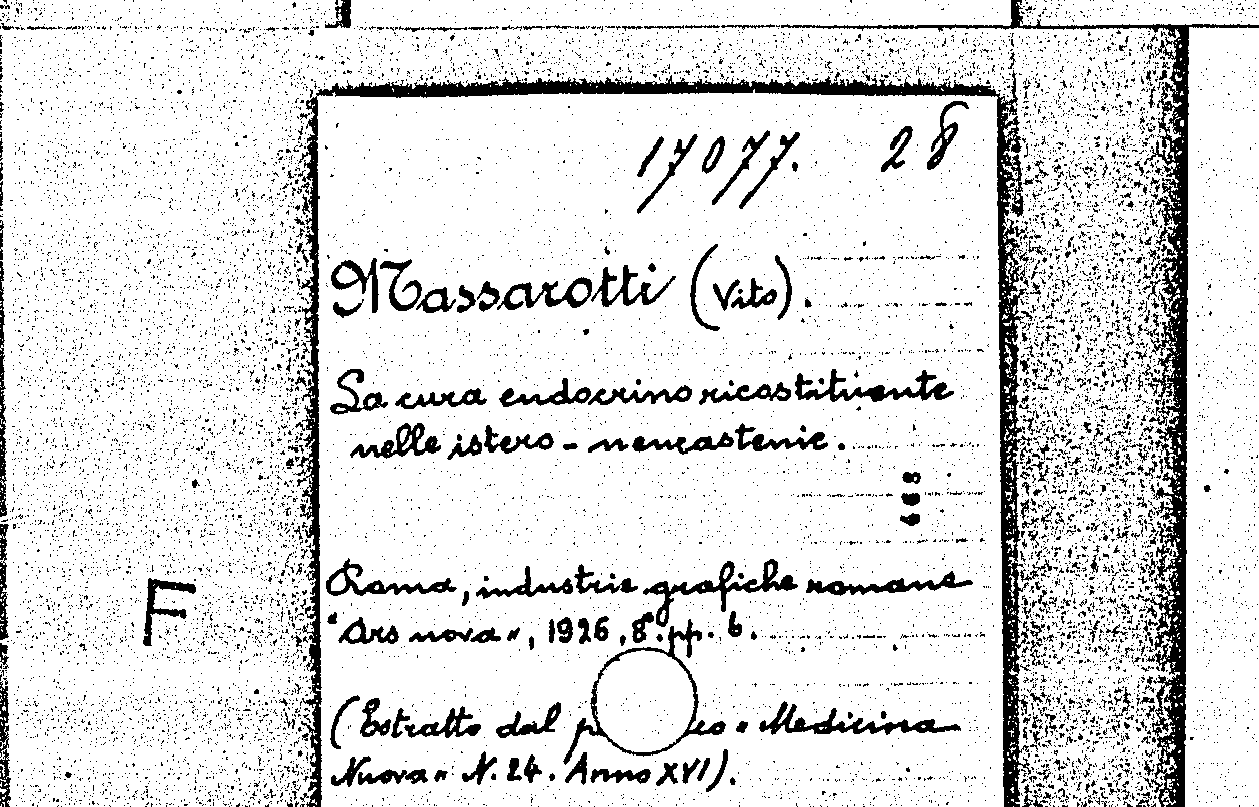 17077. 28
Massarotti (Vito).
La cura endocrino ricostituente
nelle istero - neurastenie.
668
Roma, industrie grafiche romane
F
"Ars nova", 1926, 8°. pp. 6.
(Estratto dal "Medicina
Nuova" N. 24. Anno XVI).